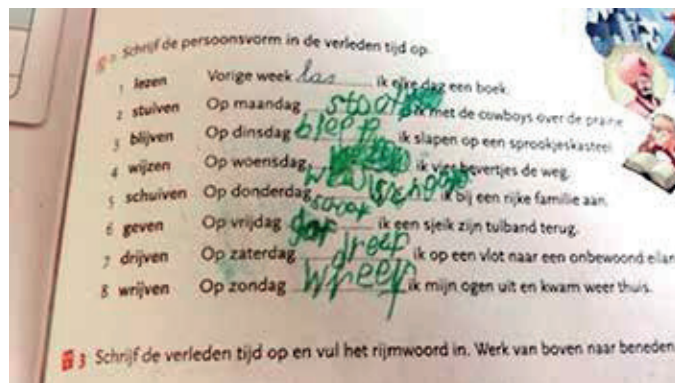 Schrijf de persoonsvorm in de verleden tijd op.
1 lezen Vorige week las ik elke dag een boek.
2 stuiven Op maandag ik met de cowboys over de prairie
3 blijven Op dinsdag bleep ik slapen op een sprookjeskasteel
4 wijzen Op woensdag ik vier bevertjes de weg.
5 schuiven Op donderdag ik bij een rijke familie aan.
6 geven Op vrijdag gaf ik een sjeik zijn tulband terug.
7 drijven Op zaterdag dreep ik op een vlot naar een onbewoond eilan
8 wrijven Op zondag wreef ik mijn ogen uit en kwam weer thuis.
3 Schrijf de verleden tijd op en vul het rijmwoord in. Werk van boven naar beneden